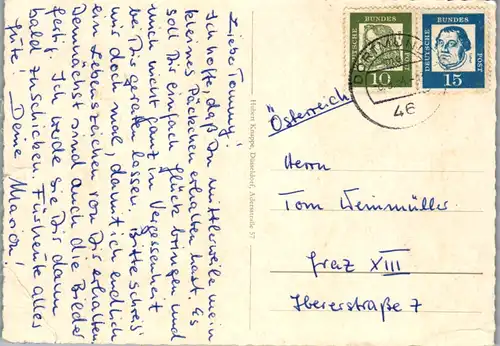 Liebe Tommy!
Ich hoffe, daß Du mittlerweile mein
kleines Päckchen erhalten hast. Es
soll Dir einfach Glück bringen und
mich nicht ganz in Vergessenheit
bei Dir geraten lassen. Bitte schreib'
mir doch mal, damit ich endlich
ein Lebenszeichen von Dir erhalte.
Demnächst sind auch die Bilder
fertig. Ich werde sie Dir dann
bald zuschicken. Für heute alles
Gute! Deine Marion!
Hubert Knuppe, Düsseldorf, Adersstraße 57
DEUTSCHE BUNDES POST
10
DEUTSCHE BUNDES POST
15
DORTMUND
46
Österreich
Herrn
Tom Weinmüller
Graz XIII
Ibererstraße 7